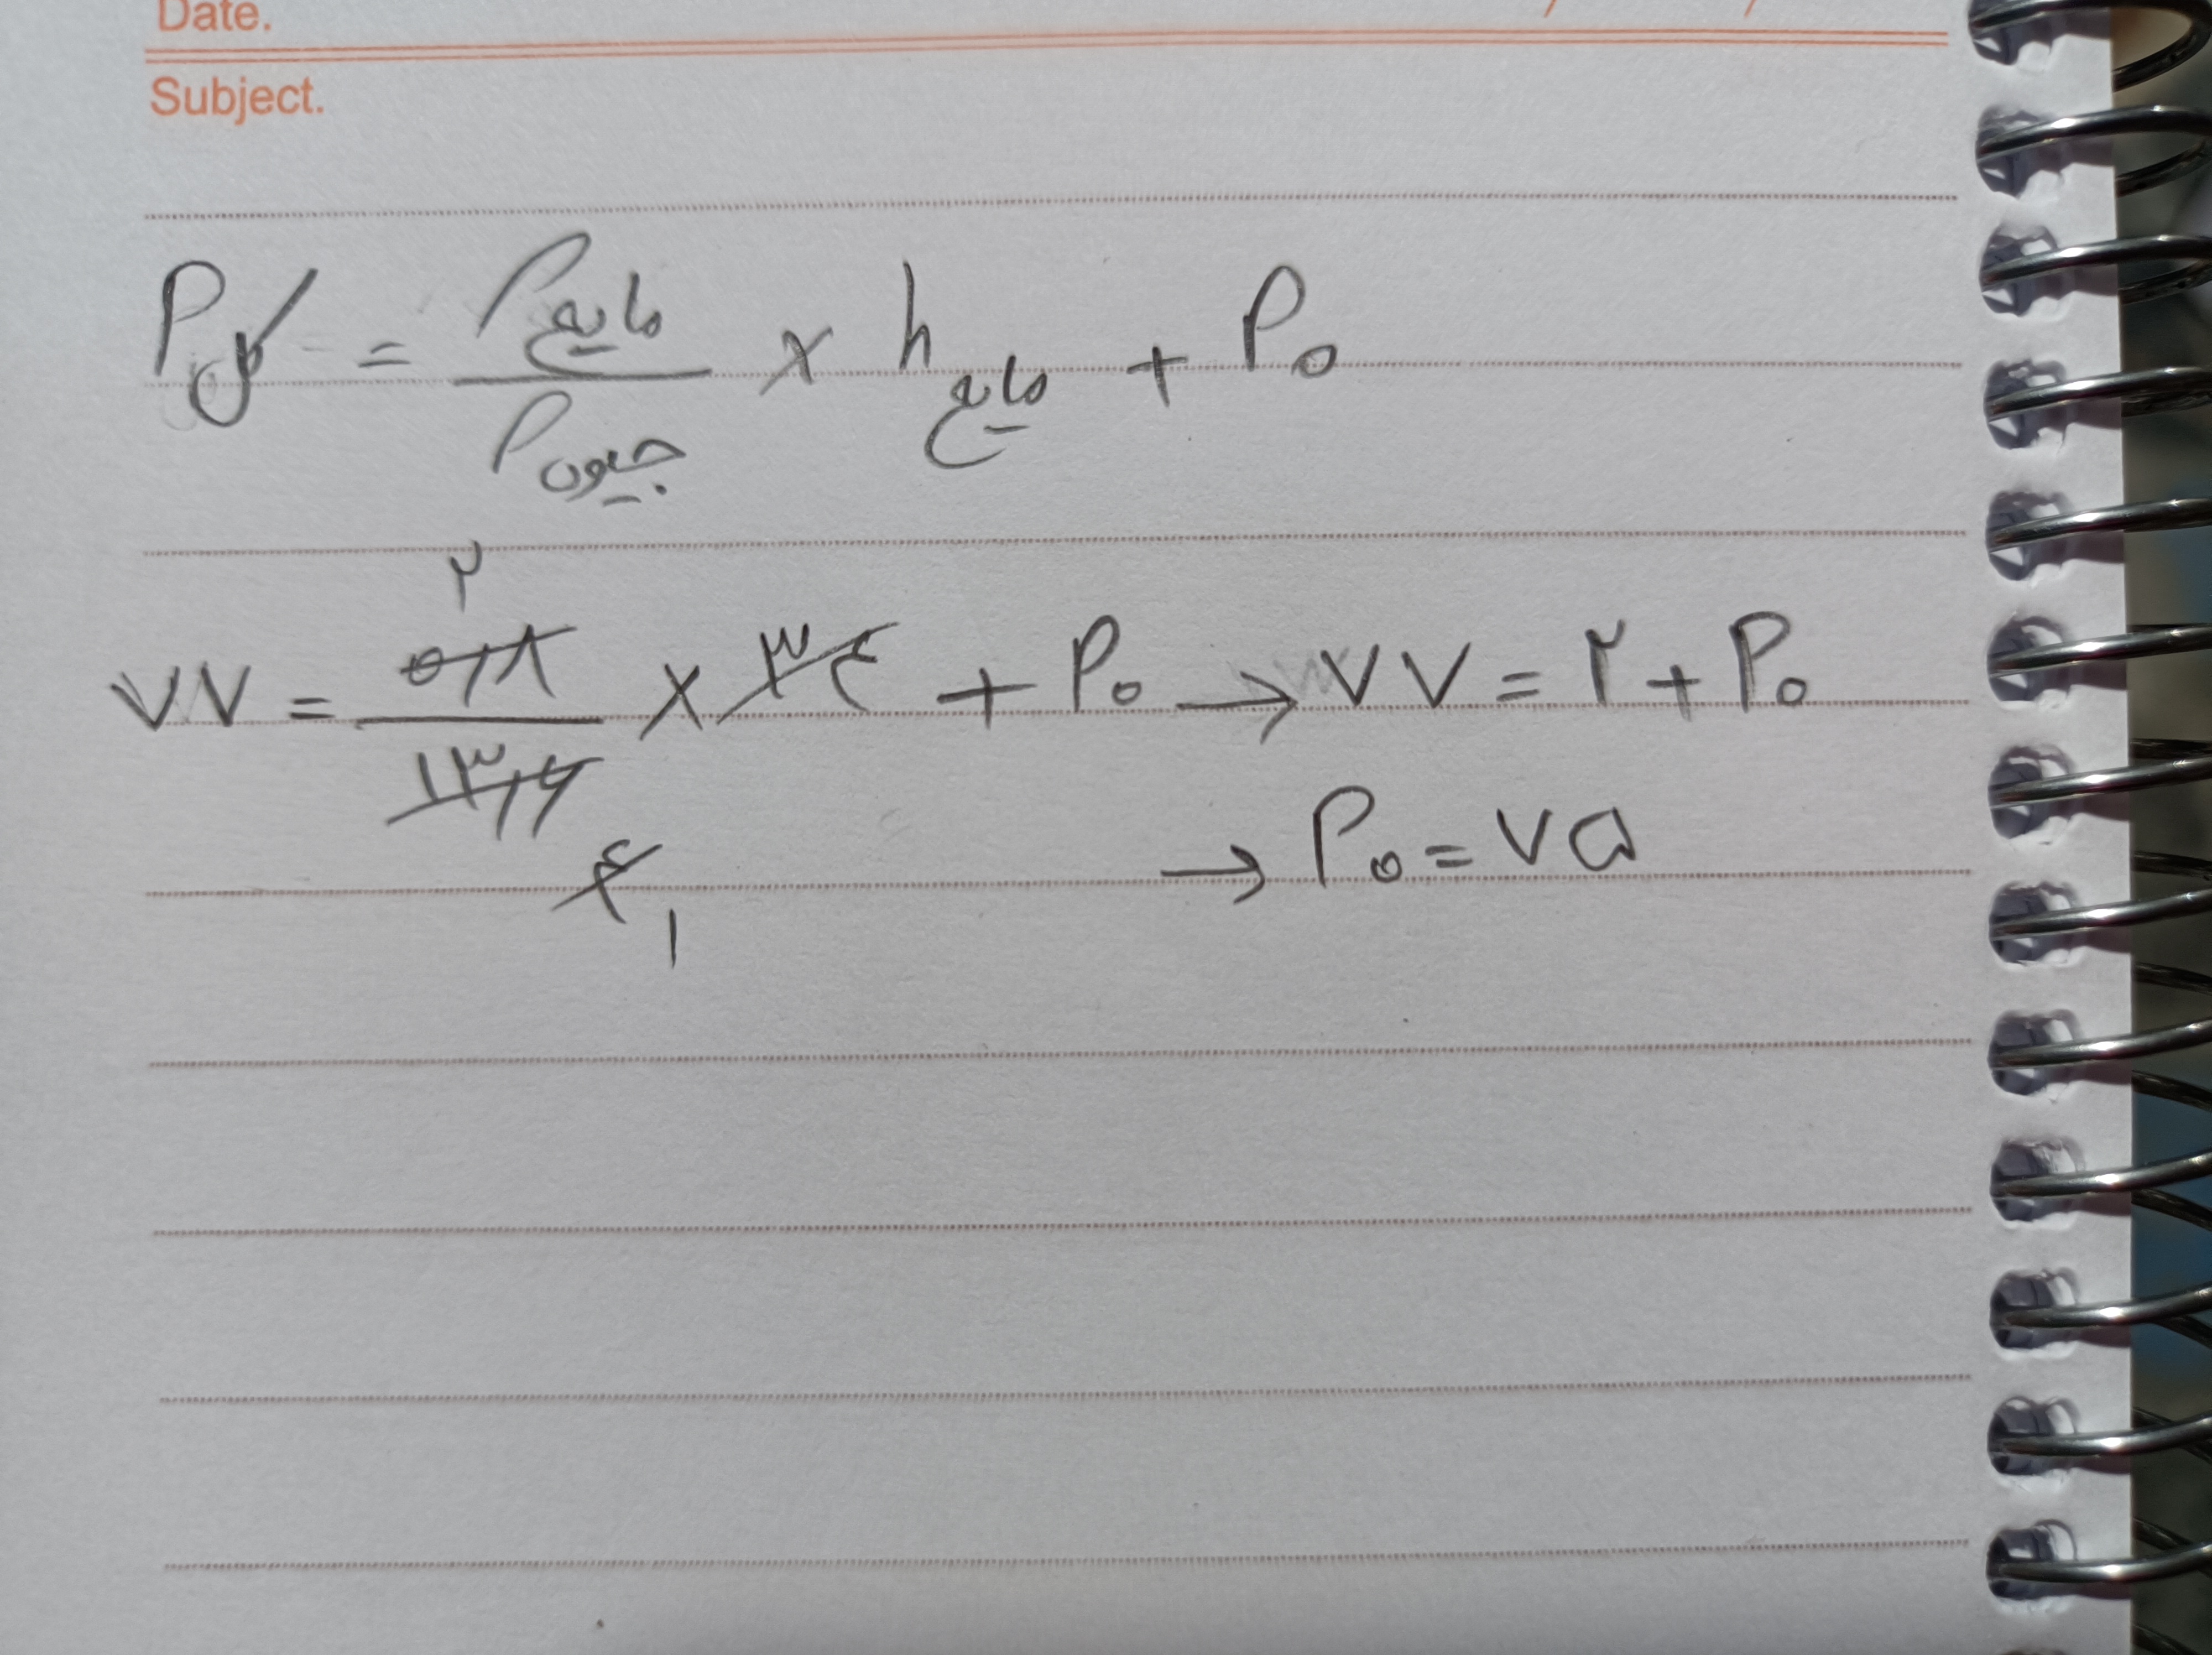 Date.
Subject.
P کل = ρ مایع / ρ جیوه × h مایع + P₀
۲
۷۷ = ۰٫۸ / ۱۳٫۶ × ۳۴ + P₀ → ۷۷ = ۲ + P₀
۴ ۱
→ P₀ = ۷۵